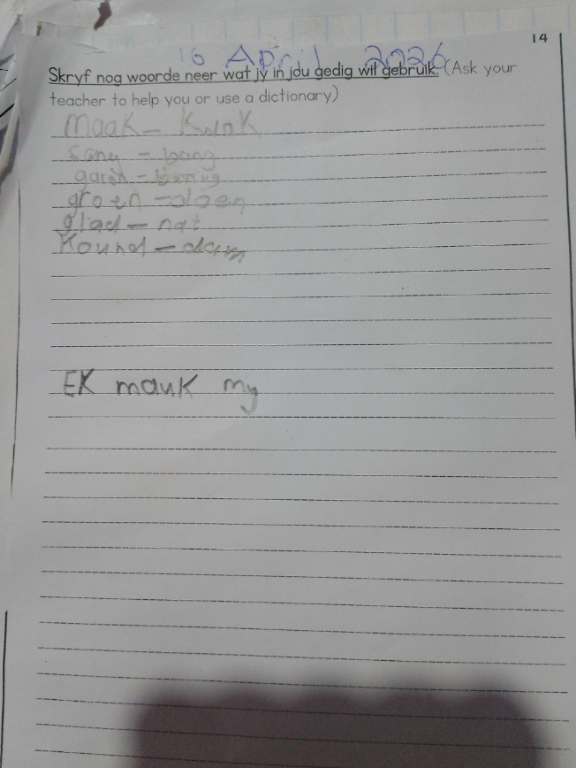 14
16 April 2026
Skryf nog woorde neer wat jy in jou gedig wil gebruik. (Ask your
teacher to help you or use a dictionary)
Maak - Kwak
sang - bang
groen - doen
glad - nat
Kound -
EK mauk my